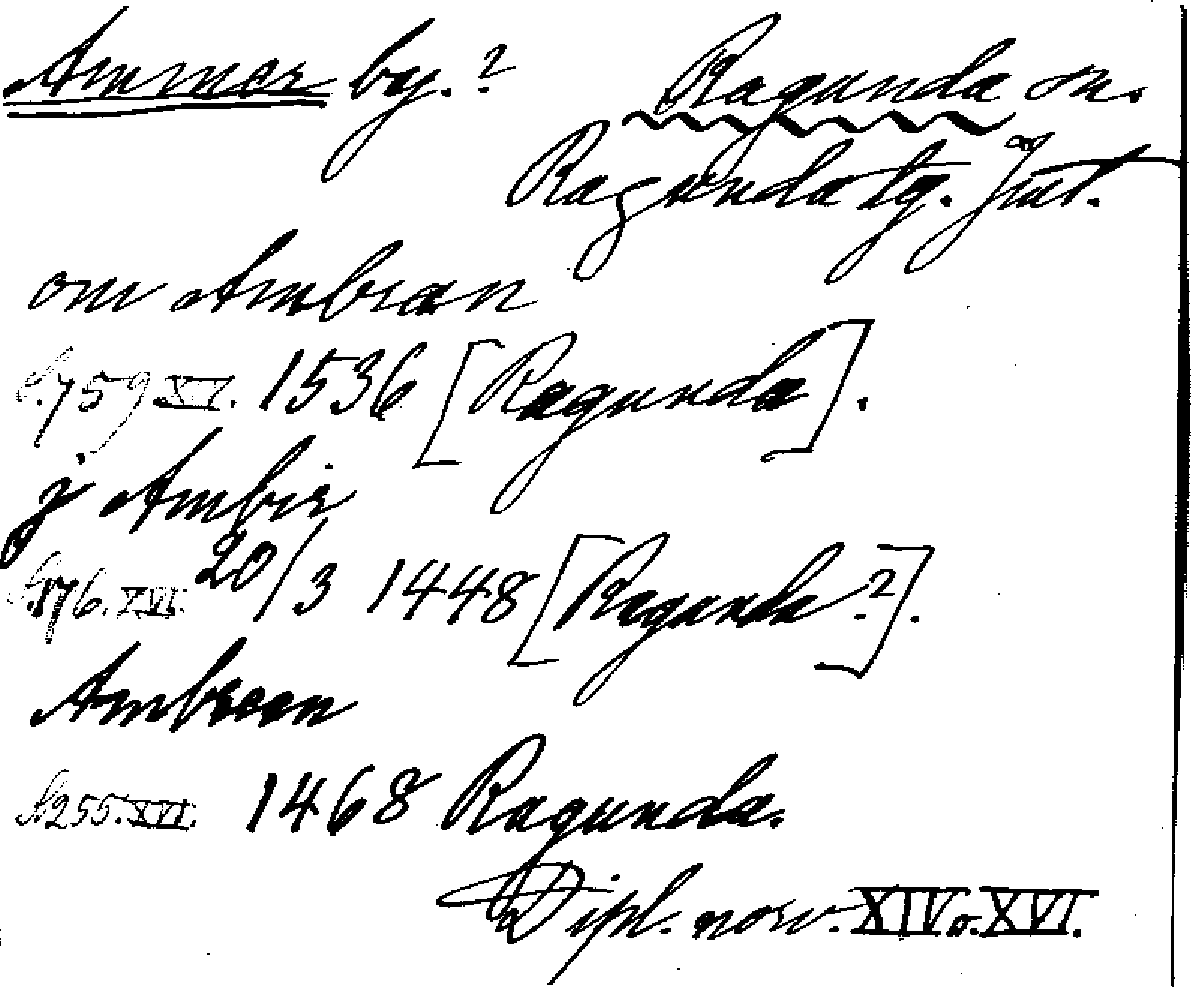 Ammer by.? Ragunda sn.
Ragunda tg. Jmt.
om Ambran
S. 759 XV. 1536 [Ragunda].
j Ambir
S. 176. XVI. 20/3 1448 [Ragunda?].
Ambraan
S. 255. XVI. 1468 Ragunda.
Dipl. norv. XIV o. XVI.